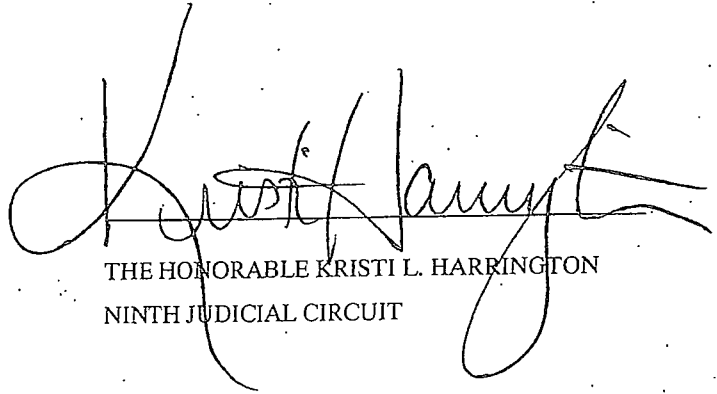 Kristi Harrington
THE HONORABLE KRISTI L. HARRINGTON
NINTH JUDICIAL CIRCUIT